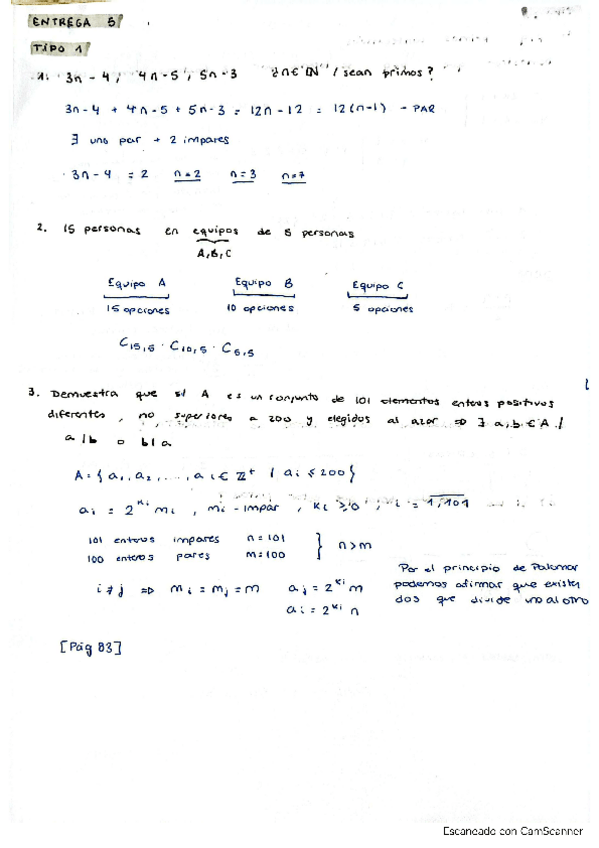 ENTREGA 5
TIPO 1
1. 3n - 4 ; 4n - 5 ; 5n - 3 ¿n ∈ ℕ / sean primos?
3n - 4 + 4n - 5 + 5n - 3 = 12n - 12 = 12(n-1) - PAR
∃ uno par + 2 impares
3n - 4 = 2 n = 2 n = 3 n = 7
2. 15 personas en equipos de 5 personas
A, B, C
Equipo A Equipo B Equipo C
15 opciones 10 opciones 5 opciones
C15,5 · C10,5 · C5,5
3. Demuestra que si A es un conjunto de 101 elementos enteros positivos
diferentes, no superiores a 200 y elegidos al azar ⇒ ∃ a, b ∈ A /
a | b o b | a
A = { a1, a2, ..., ai ∈ ℤ+ / ai ≤ 200 }
ai = 2^ki mi , mi - impar , ki ≥ 0 , i = 1,101
101 enteros impares n = 101
100 enteros pares m = 100 } n > m
i ≠ j ⇒ mi = mj = m aj = 2^ki m
ai = 2^ki n
Por el principio de Palomar
podemos afirmar que existen
dos que divide uno al otro
[Pág 83]
Escaneado con CamScanner